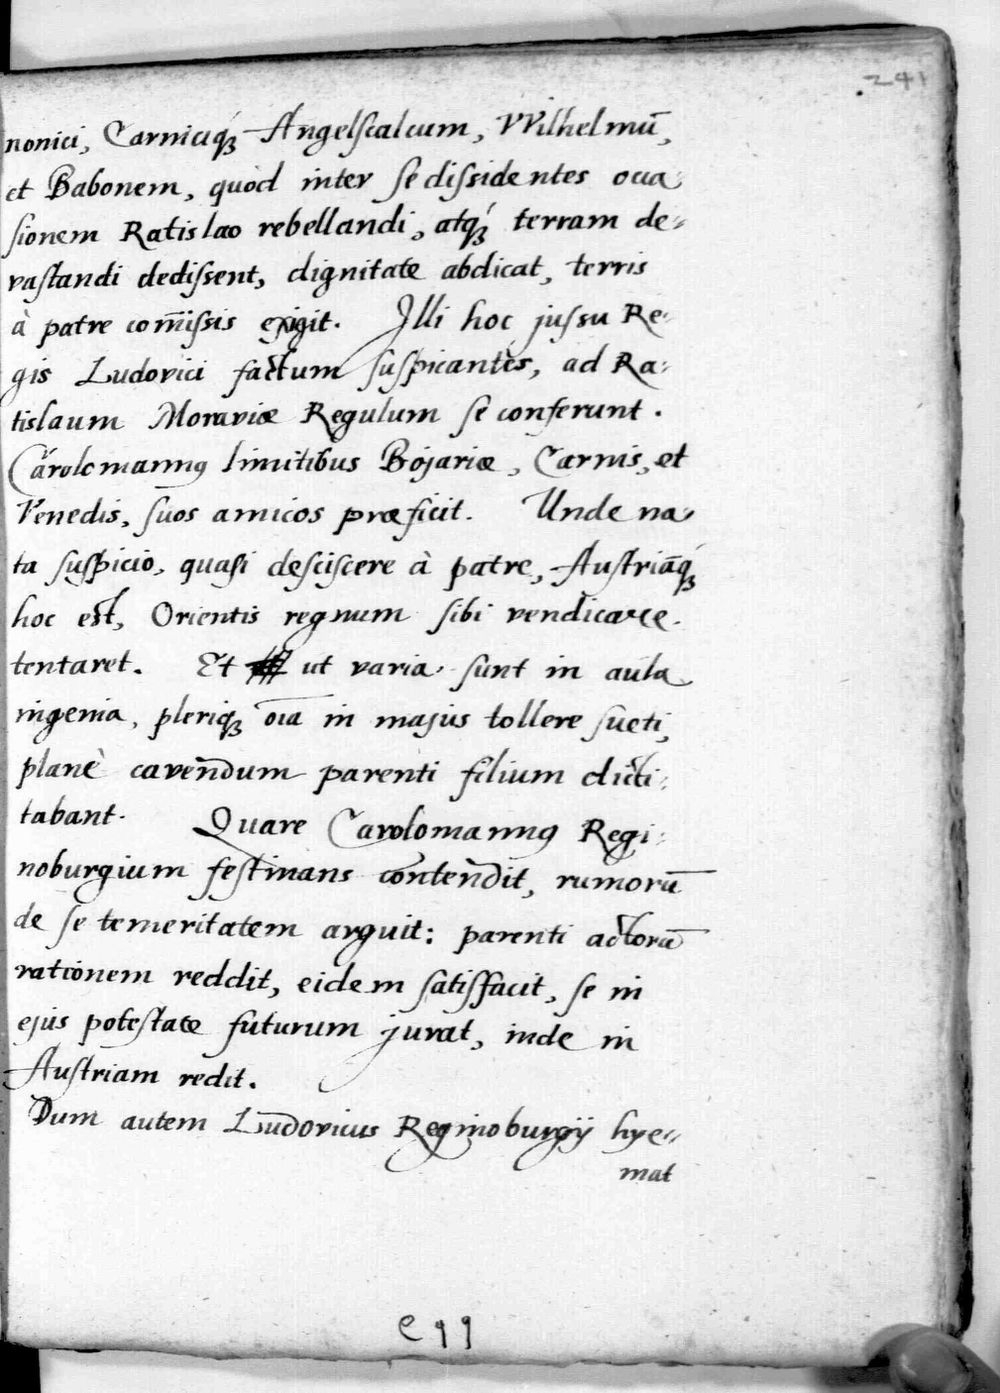 241
nonici, Carniciq́ꝫ Angelscalcum, VVilhelmū,
et Babonem, quòd inter se dissidentes occa-
sionem Ratislao rebellandi, atq́ꝫ terram de-
vastandi dedissent, dignitate abdicat, terris
à patre com̄issis exigit. Illi hoc jussu Re-
gis Ludovici factum suspicantes, ad Ra-
tislaum Moraviæ Regulum se conferunt.
Carolomannꝰ limitibus Bojariæ, Carnis, et
Venedis, suos amicos præficit. Unde na-
ta suspicio, quasi desciscere à patre, Austriāq́ꝫ
hoc est, Orientis regnum sibi vendicare
tentaret. Et ut varia sunt in aula
ingenia, pleriqꝫ oīa in majus tollere sueti,
planè cavendum parenti filium dicti-
tabant. Quare Carolomannꝰ Regi-
noburgium festinans contendit, rumorū
de se temeritatem arguit: parenti actorū
rationem reddit, eidem satisfacit, se in
ejus potestate futurum jurat, inde in
Austriam redit.
Dum autem Ludovicus Reginoburgij hye-
mat